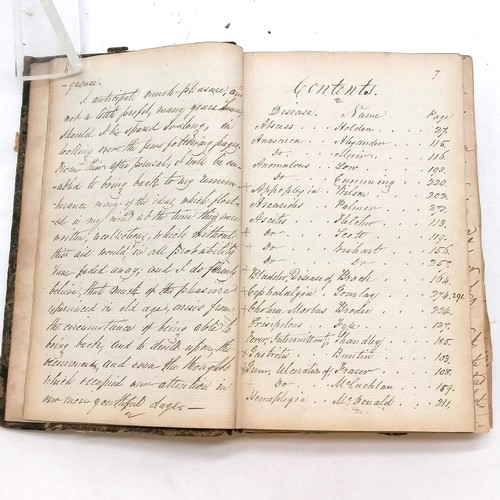 6
-quence.
I anticipate much pleasure, and
not a little profit, many years hence,
should I be spared so long, in
looking over the few following pages.
From their after perusal, I will be en-
abled to bring back to my remem-
brance many of the ideas, which float-
ed in my mind at the time they were
written, recollections, which without
this aid would, in all probability
have faded away; and I do firmly
believe, that much of the pleasure
experienced in old age, arises from
the circumstance of being able to
bring back and to dwell upon, the
occurrences, and even the thoughts
which occupied our attention in
our more youthful days.—
7
Contents.
Disease. Name Page
Abscess . . Holden . . . 27.
Anasarca . . Alexander . . . 115.
Do . . Muir . . . 116.
Anomalous . . Low . . . 193.
Do . . Cumming . . . 220.
+ Appoplexia . . Wilson . . . 203.
Ascarides . . Palmer . . . 272.
Ascites . . Fletcher . . . 113.
+ Do . . Scott . . . 119.
Do . . . . . 156.
Do . . Do . . . 253.
+ Bladder, Disease of Brock . . . 164.
+ Cephalalgia . . Gourlay . . . 274, 291.
+ Cholera Morbus Brodie . . . 226.
Erysipelas . . Fyfe . . . 127.
Fever, Intermittent, Shandley . . . 185.
+ Gastritis . . Buntin . . . 103.
+ Gum, Ulceration of Fraser . . . 108.
+ Do . . McLachlan . . . 189.
Hemeplegia . . McDonald . . . 211.